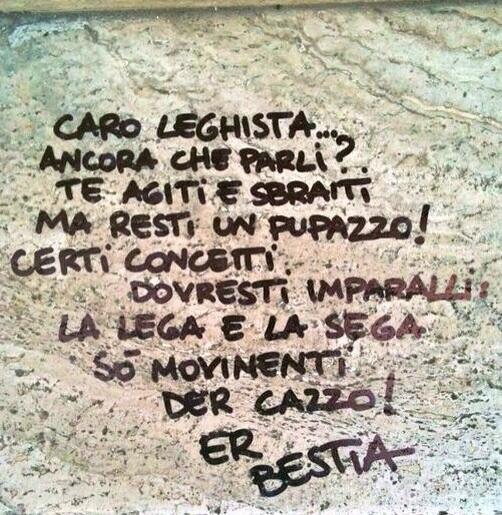 CARO LEGHISTA...
ANCORA CHE PARLI?
TE AGITI E SBRAITI
MA RESTI UN PUPAZZO!
CERTI CONCETTI
DOVRESTI IMPARALLI:
LA LEGA E LA SEGA
SÒ MOVINENTI
DER CAZZO!
ER
BESTIA